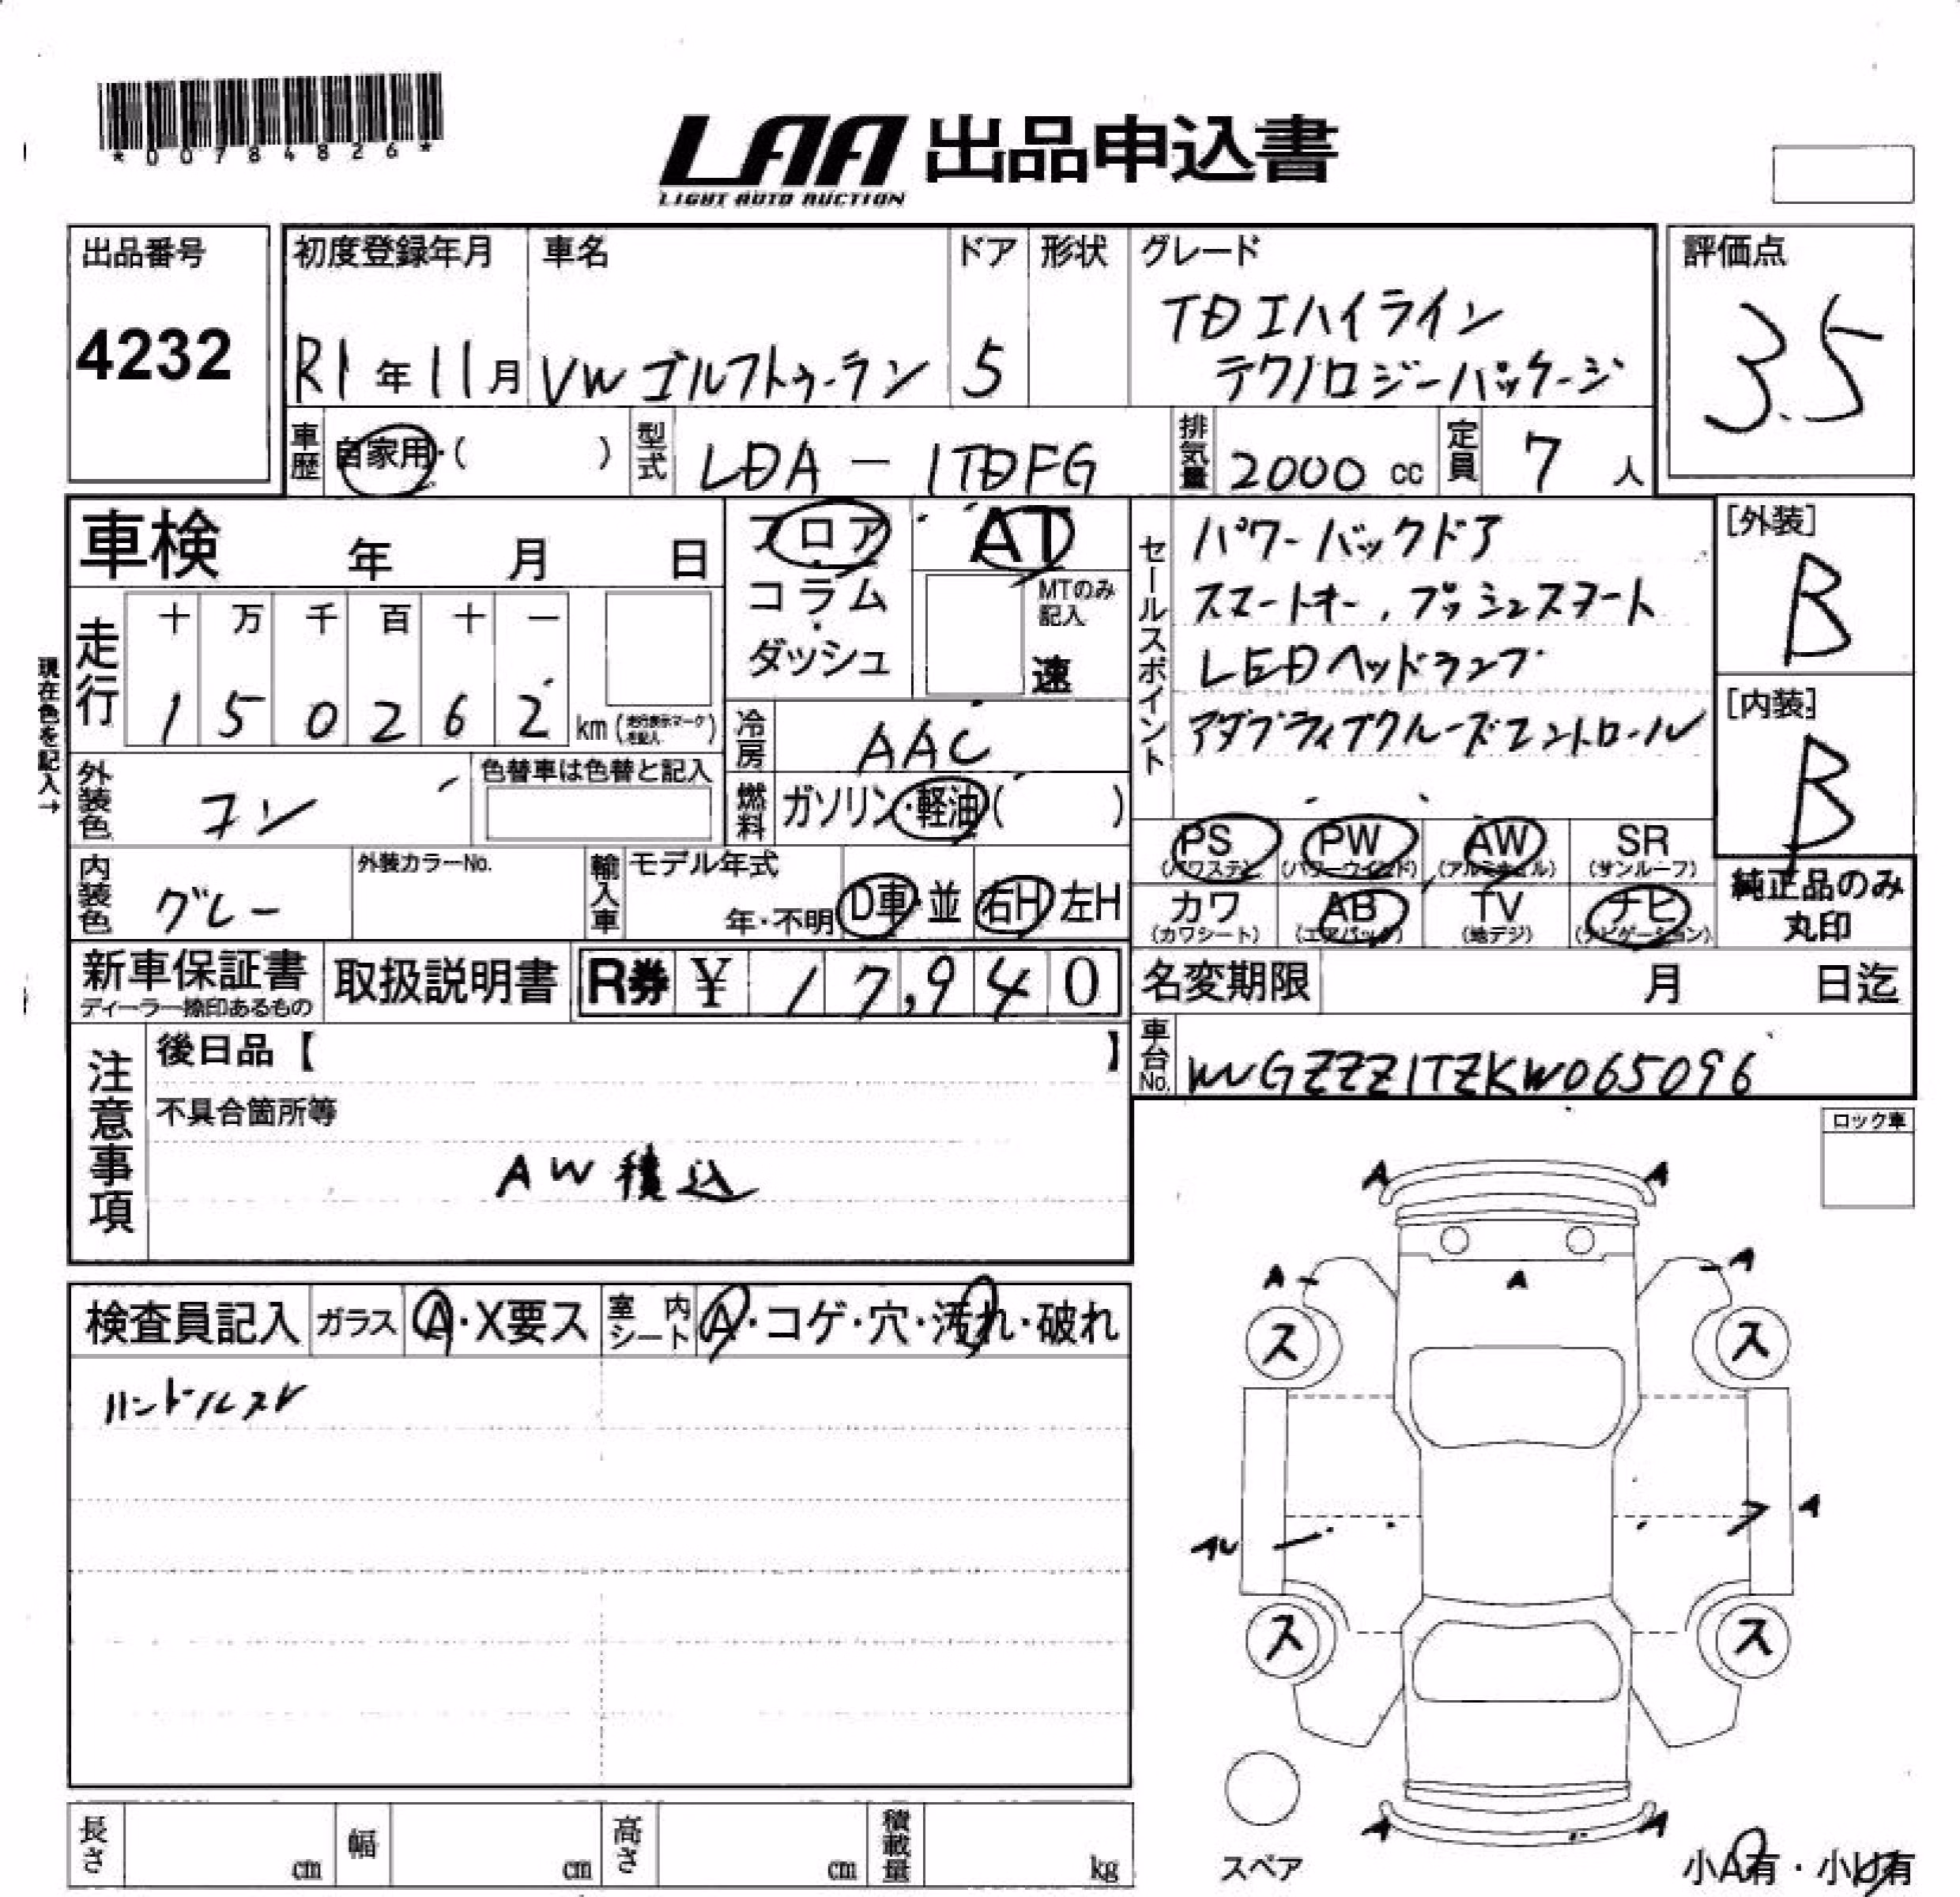 *00784826*
LAA 出品申込書
LIGHT AUTO AUCTION
出品番号
4232
初度登録年月
R1年11月
車名
VW ゴルフトゥーラン
ドア
5
形状
グレード
TDIハイライン
テクノロジーパッケージ
評価点
3.5
車歴
自家用・( )
型式
LDA-1TDFG
排気量
2000 cc
定員
7 人
車検 年 月 日
フロア
コラム
ダッシュ
AT
MTのみ記入
速
セールスポイント
パワーバックドア
スマートキー, プッシュスタート
LEDヘッドランプ
アダプティブクルーズコントロール
[外装]
B
[内装]
B
現在色を記入→
走行
十 万 千 百 十 一
1 5 0 2 6 2
km (走行表示マークを記入)
冷房
AAC
外装色
コン
色替車は色替と記入
燃料
ガソリン・軽油( )
PS
(パワステ)
PW
(パワーウインド)
AW
(アルミホイル)
SR
(サンルーフ)
内装色
グレー
外装カラーNo.
輸入車
モデル年式
年・不明
D車・並
右H 左H
カワ
(カワシート)
AB
(エアバック)
TV
(地デジ)
ナビ
(ナビゲーション)
純正品のみ
丸印
新車保証書
ディーラー捺印あるもの
取扱説明書
R券 ¥ 17,940
名変期限 月 日迄
車台No.
WVGZZZ1TZKW065096
注意事項
後日品【 】
不具合箇所等
AW積込
ロック車
A A
A A
A
ス ス
A
ス ス
A A
検査員記入
ガラス
A・X要ス
室内シート
A・コゲ・穴・汚れ・破れ
ハンドルスレ
スペア
小A有・小U有
長さ cm
幅 cm
高さ cm
積載量 kg